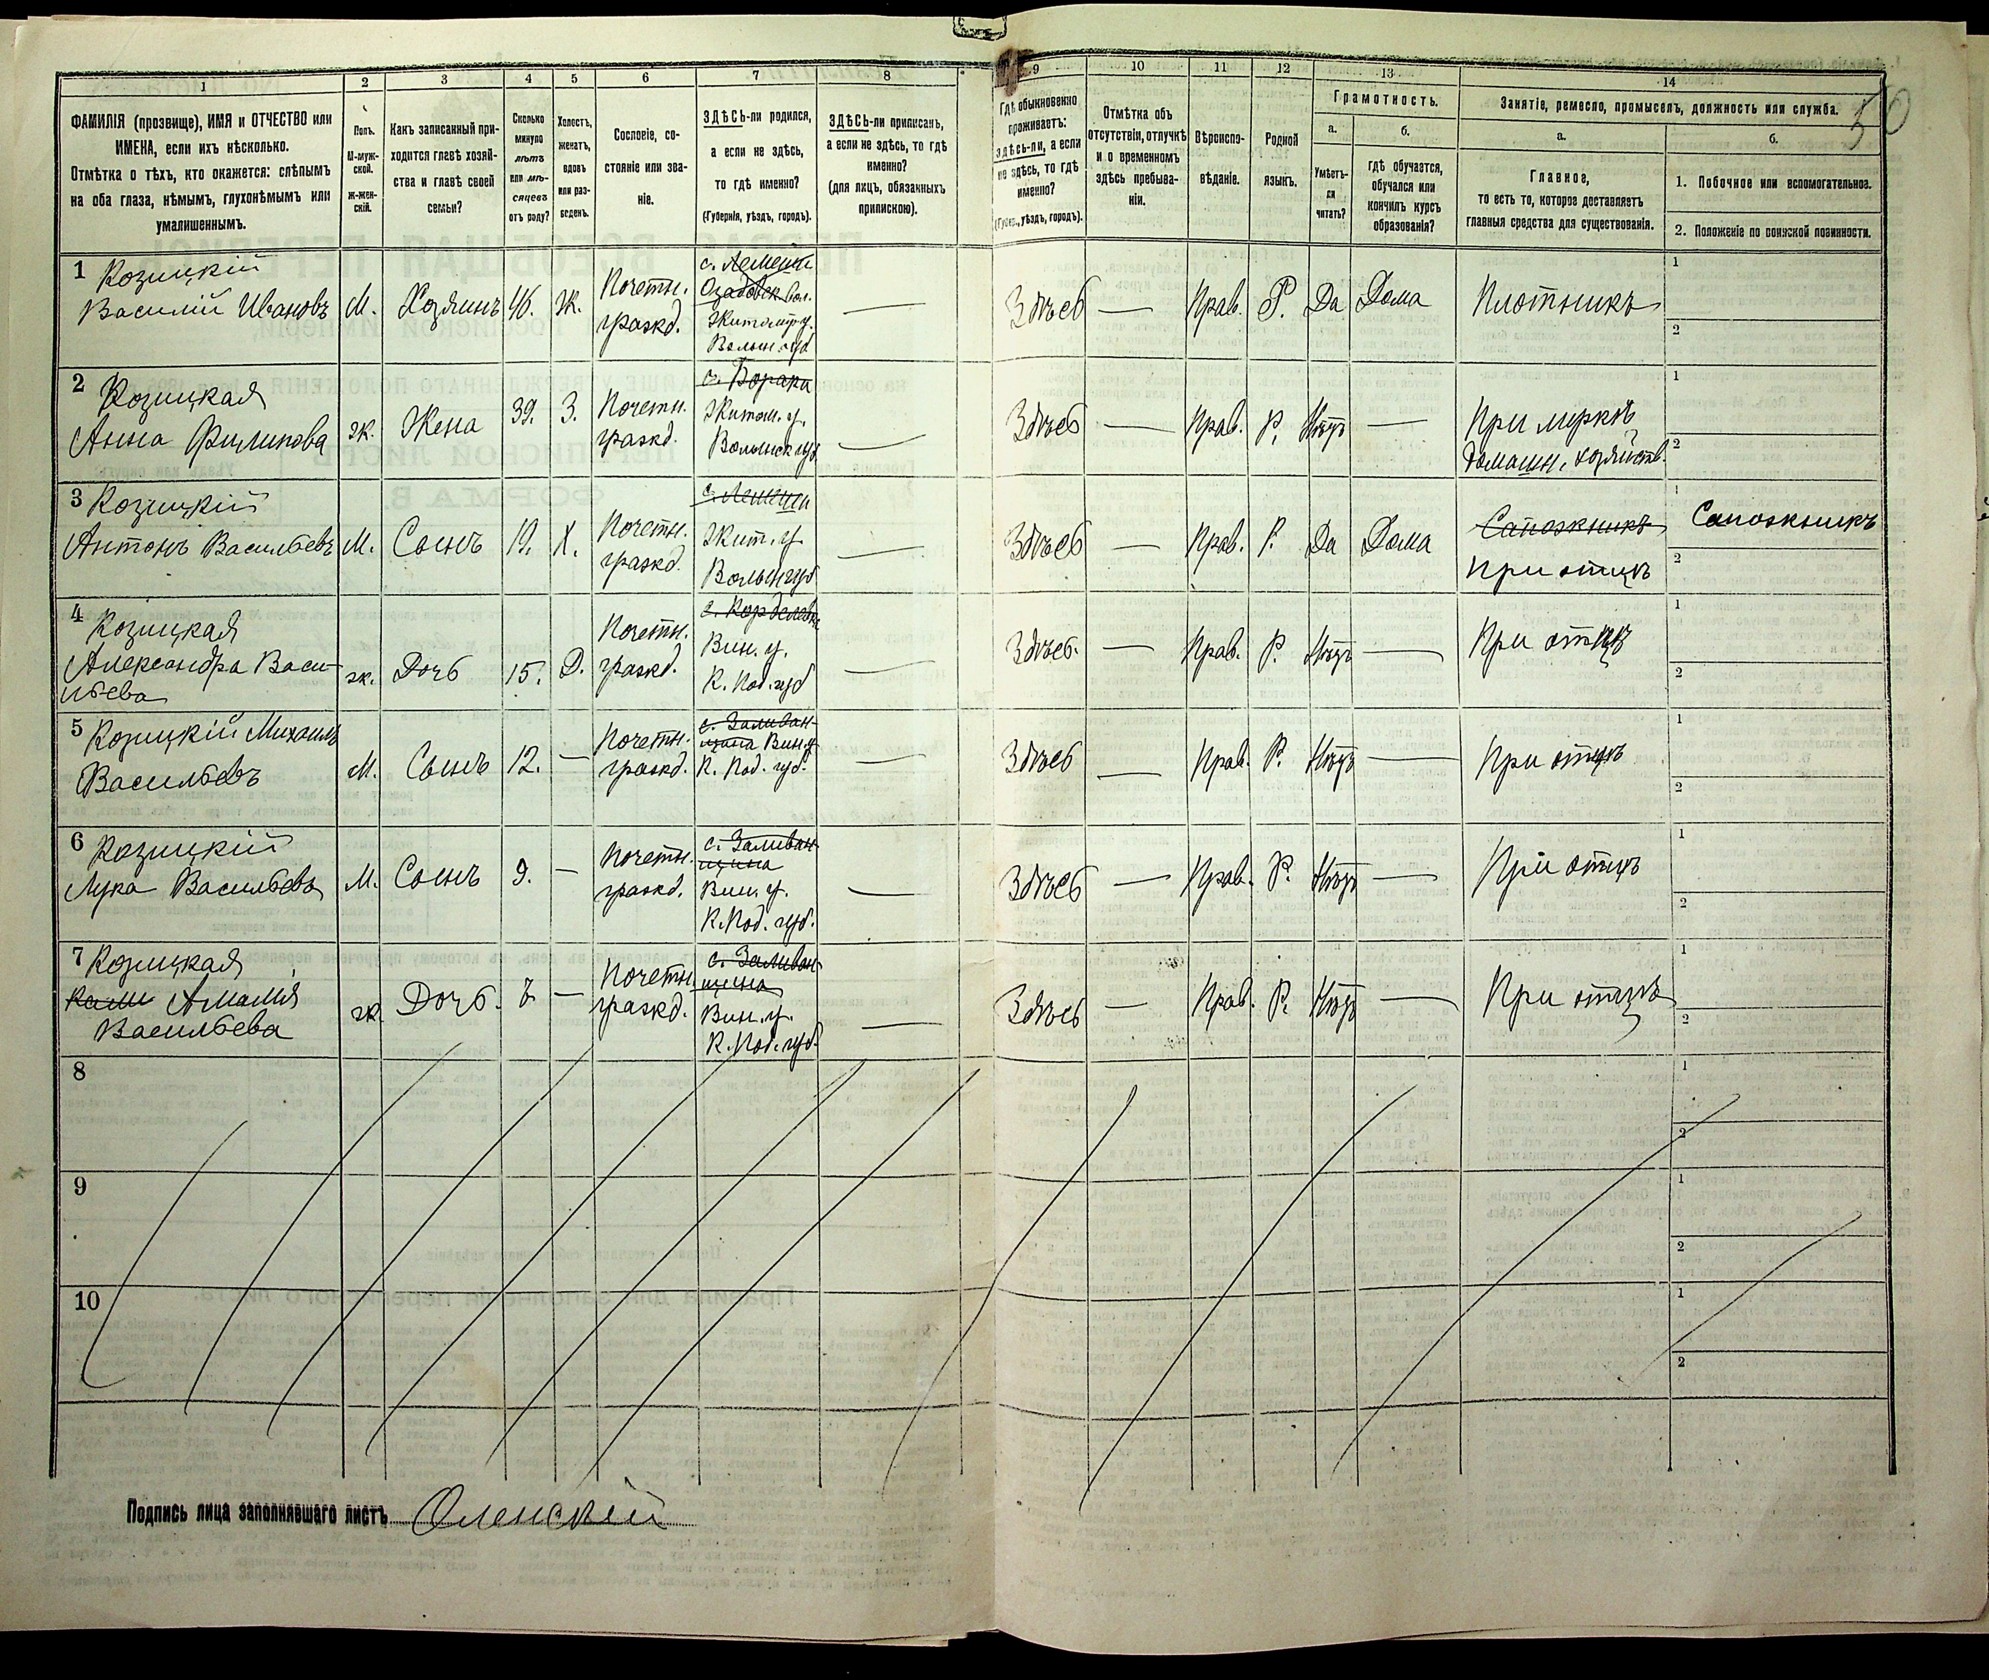 50
1
2
3
4
5
6
7
8
ФАМИЛІЯ (прозвище), ИМЯ и ОТЧЕСТВО или
ИМЕНА, если ихъ нѣсколько.
Отмѣтка о тѣхъ, кто окажется: слѣпымъ
на оба глаза, нѣмымъ, глухонѣмымъ или
умалишеннымъ.
Полъ.
М-муж-
ской.
Ж-жен-
скій.
Какъ записанный при-
ходится главѣ хозяй-
ства и главѣ своей
семьи?
Сколько
минуло
лѣтъ
или мѣ-
сяцевъ
отъ роду?
Холостъ,
женатъ,
вдовъ
или раз-
веденъ.
Сословіе, со-
стояніе или зва-
ніе.
ЗДѢСЬ-ли родился,
а если не здѣсь,
то гдѣ именно?
(Губернія, уѣздъ, городъ).
ЗДѢСЬ-ли приписанъ,
а если не здѣсь, то гдѣ
именно?
(для лицъ, обязанныхъ
припискою).
9
10
11
12
13
14
Гдѣ обыкновенно
проживаетъ:
здѣсь-ли, а если
не здѣсь, то гдѣ
именно?
(Губерн., уѣздъ, городъ).
Отмѣтка объ
отсутствіи, отлучкѣ
и о временномъ
здѣсь пребыва-
ніи.
Вѣроиспо-
вѣданіе.
Родной
языкъ.
Грамотность.
а.
Умѣетъ-
ли
читать?
б.
гдѣ обучается,
обучался или
кончилъ курсъ
образованія?
Занятіе, ремесло, промыселъ, должность или служба.
а.
Главное,
то есть то, которое доставляетъ
главныя средства для существованія.
б.
1. Побочное или вспомогательное.
2. Положеніе по воинской повинности.
1 Козицкій
Василій Ивановъ
М.
Хозяинъ
46.
Ж.
Почетн.
гражд.
с. Лемеши
Вол.
Житом. у.
Волын. губ
—
Здѣсь
—
Прав.
Р.
Да
Дома
Плотникъ
1
2
2 Козицкая
Анна Филипова
ж.
Жена
39.
З.
Почетн.
гражд.
Житом. у.
Волынск губ
—
Здѣсь
—
Прав.
Р.
Нѣтъ
—
При
домашн. хозяйств.
1
2
3 Козицкій
Антонъ Васильевъ
М.
Сынъ
19.
Х.
Почетн.
гражд.
с. Лемеши
Жит. у.
Волын губ
—
Здѣсь
—
Прав.
Р.
Да
Дома
Сапожникъ
При отцѣ
1
Сапожникъ
2
4 Козицкая
Александра Васи-
льева
ж.
Дочь
15.
Д.
Почетн.
гражд.
Вин. у.
К. Под. губ
—
Здѣсь.
—
Прав.
Р.
Нѣтъ
—
При отцѣ
1
2
5 Козицкій Михаилъ
Васильевъ
М.
Сынъ
12.
—
Почетн.
гражд.
с. Заливан-
щина Вин. у
К. Под. губ.
—
Здѣсь
—
Прав.
Р.
Нѣтъ
—
При отцѣ
1
2
6 Козицкій
Лука Васильевъ
М.
Сынъ
9.
—
Почетн.
гражд.
с. Заливан-
щина
Вин. у.
К. Под. губ.
—
Здѣсь
—
Прав.
Р.
Нѣтъ
—
При отцѣ
1
2
7 Козицкая
Амалія
Васильева
ж.
Дочь.
—
Почетн.
гражд.
с. Заливан
щина
Вин. у.
К. Под. губ.
—
Здѣсь
—
Прав.
Р.
Нѣтъ
—
При отцѣ
1
2
8
1
2
9
1
2
10
1
2
Подпись лица заполнявшаго листъ Оленскій